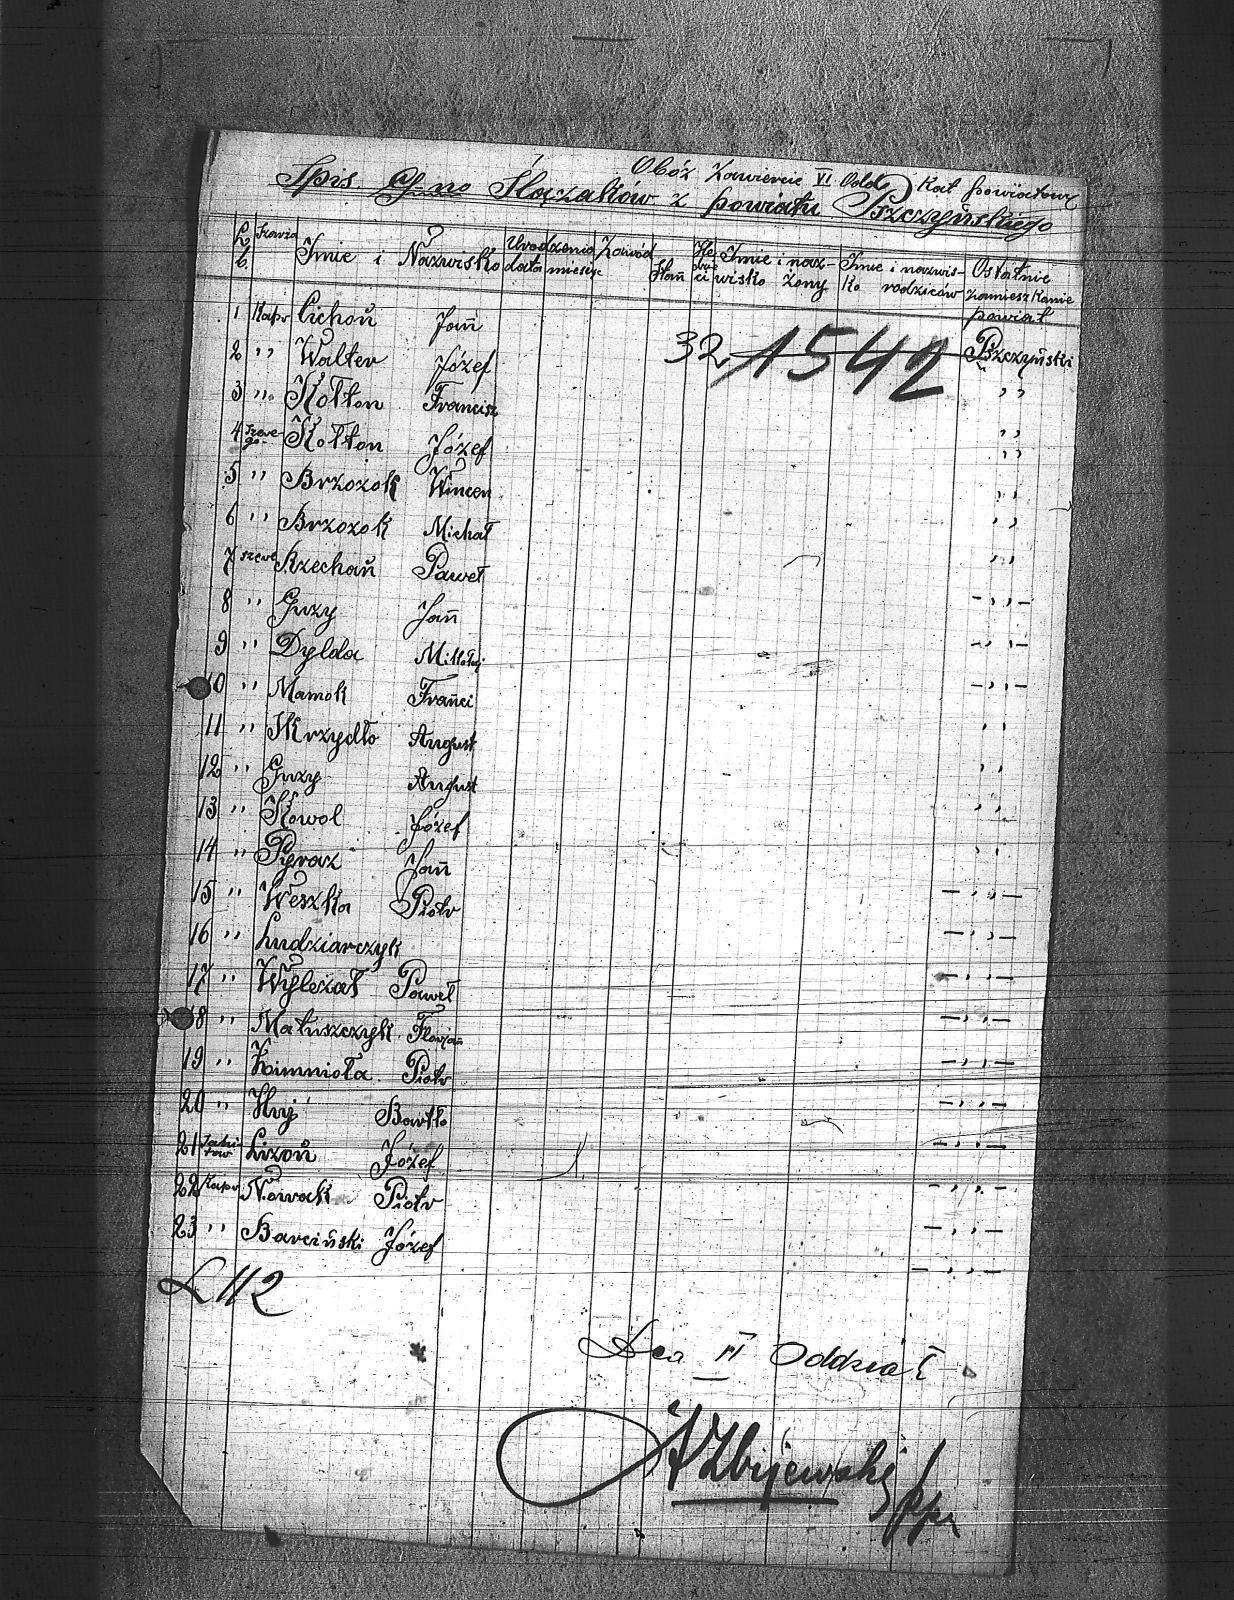 Obóz Zawiercie VI Odd Kat powiatowy
Spis Ślązaków z powiatu Pszczyńskiego
L. b. Imie i Nazwisko Urodzenia data miesiąc Zawód Stan Imie i nazwisko żony Imie i nazwisko rodziców Ostatnie zamieszkanie powiat
1 Kapr Cichoń Jań Pszczyński
32 1542
2 " Walter Józef "
3 " Kołton Francisz "
4 Kołton Józef "
5 " Brzozok Wincen "
6 " Brzozok Michał "
7 szere Krzechoń Paweł "
8 " Guzy Jań -"-
9 " Dylda Mikołaj -"-
10 " Mamok Frańci -"-
11 " Skrzydło August "
12 " Guzy August "
13 " Kowol Józef "
14 " Pyraz Jań "
15 " Weszka Piotr -"-
16 " Ludziarczyk -"-
17 " Wyleżał Paweł -"-
18 " Matuszczyk Florjan -"-
19 " Zimnioła Piotr -"-
20 " Bartło -"-
21 Lizoń Józef -"-
22 Kapr Nowak Piotr -"-
23 " Barciński Józef -"-
L 112
Dca VI Oddział
Zbijewski
ppr